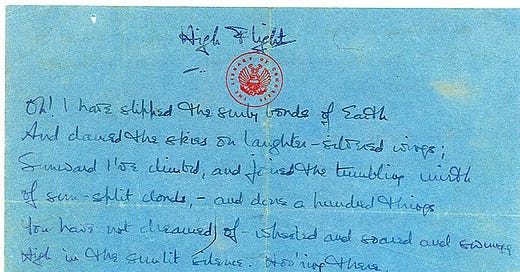 High Flight
THE LIBRARY OF CONGRESS
Oh! I have slipped the surly bonds of Earth
And danced the skies on laughter-silvered wings;
Sunward I've climbed, and joined the tumbling mirth
of sun-split clouds, – and done a hundred things
You have not dreamed of – wheeled and soared and swung
High in the sunlit silence. Hov'ring there,